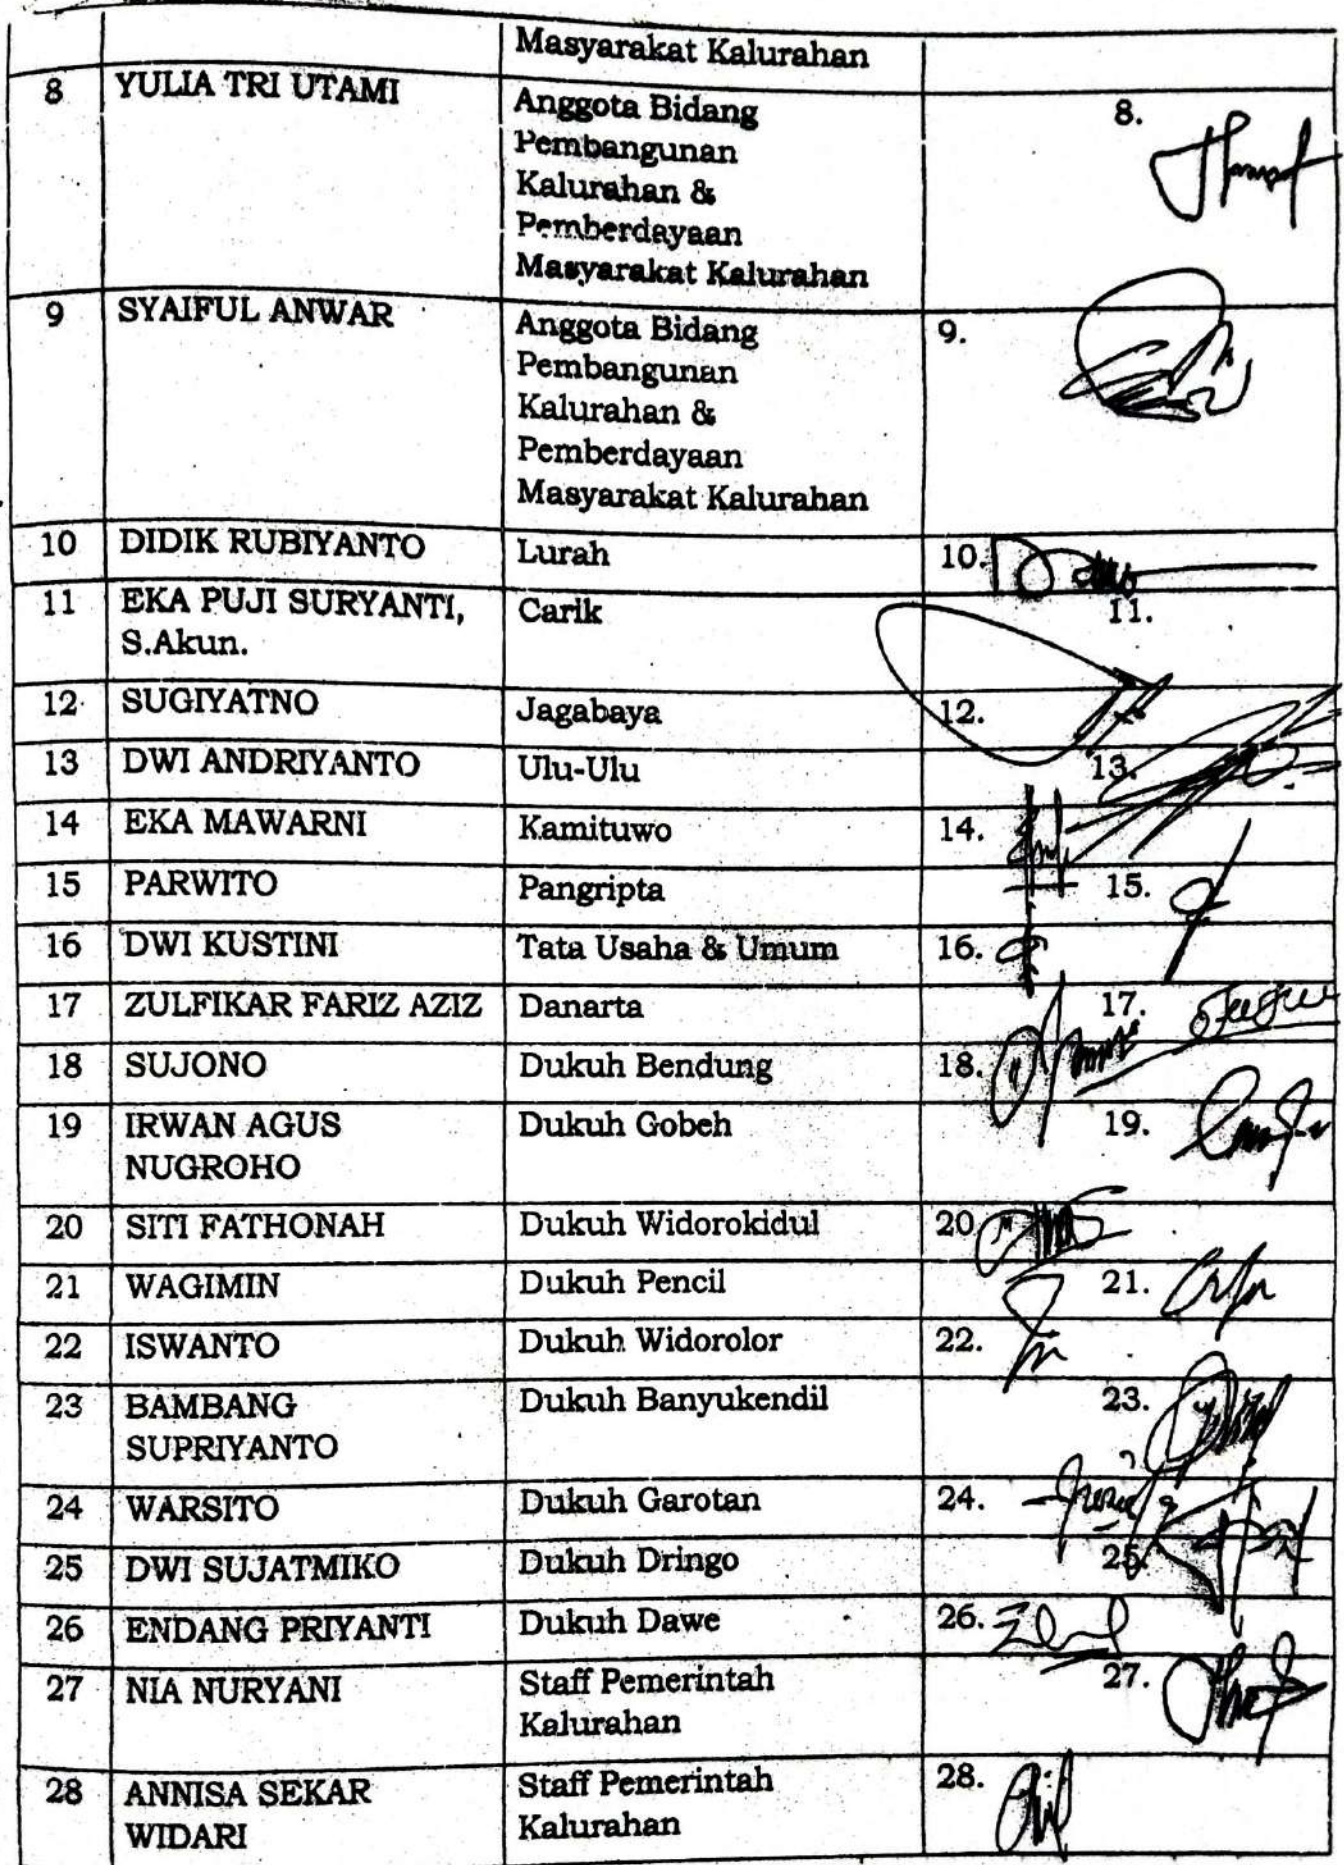 Masyarakat Kalurahan
8 YULIA TRI UTAMI Anggota Bidang 8.
Pembangunan
Kalurahan &
Pemberdayaan
Masyarakat Kalurahan
9 SYAIFUL ANWAR Anggota Bidang 9.
Pembangunan
Kalurahan &
Pemberdayaan
Masyarakat Kalurahan
10 DIDIK RUBIYANTO Lurah 10.
11 EKA PUJI SURYANTI, Carik 11.
S.Akun.
12 SUGIYATNO Jagabaya 12.
13 DWI ANDRIYANTO Ulu-Ulu 13.
14 EKA MAWARNI Kamituwo 14.
15 PARWITO Pangripta 15.
16 DWI KUSTINI Tata Usaha & Umum 16.
17 ZULFIKAR FARIZ AZIZ Danarta 17.
18 SUJONO Dukuh Bendung 18.
19 IRWAN AGUS Dukuh Gobeh 19.
NUGROHO
20 SITI FATHONAH Dukuh Widorokidul 20
21 WAGIMIN Dukuh Pencil 21.
22 ISWANTO Dukuh Widorolor 22.
23 BAMBANG Dukuh Banyukendil 23.
SUPRIYANTO
24 WARSITO Dukuh Garotan 24.
25 DWI SUJATMIKO Dukuh Dringo 25.
26 ENDANG PRIYANTI Dukuh Dawe 26.
27 NIA NURYANI Staff Pemerintah 27.
Kalurahan
28 ANNISA SEKAR Staff Pemerintah 28.
WIDARI Kalurahan